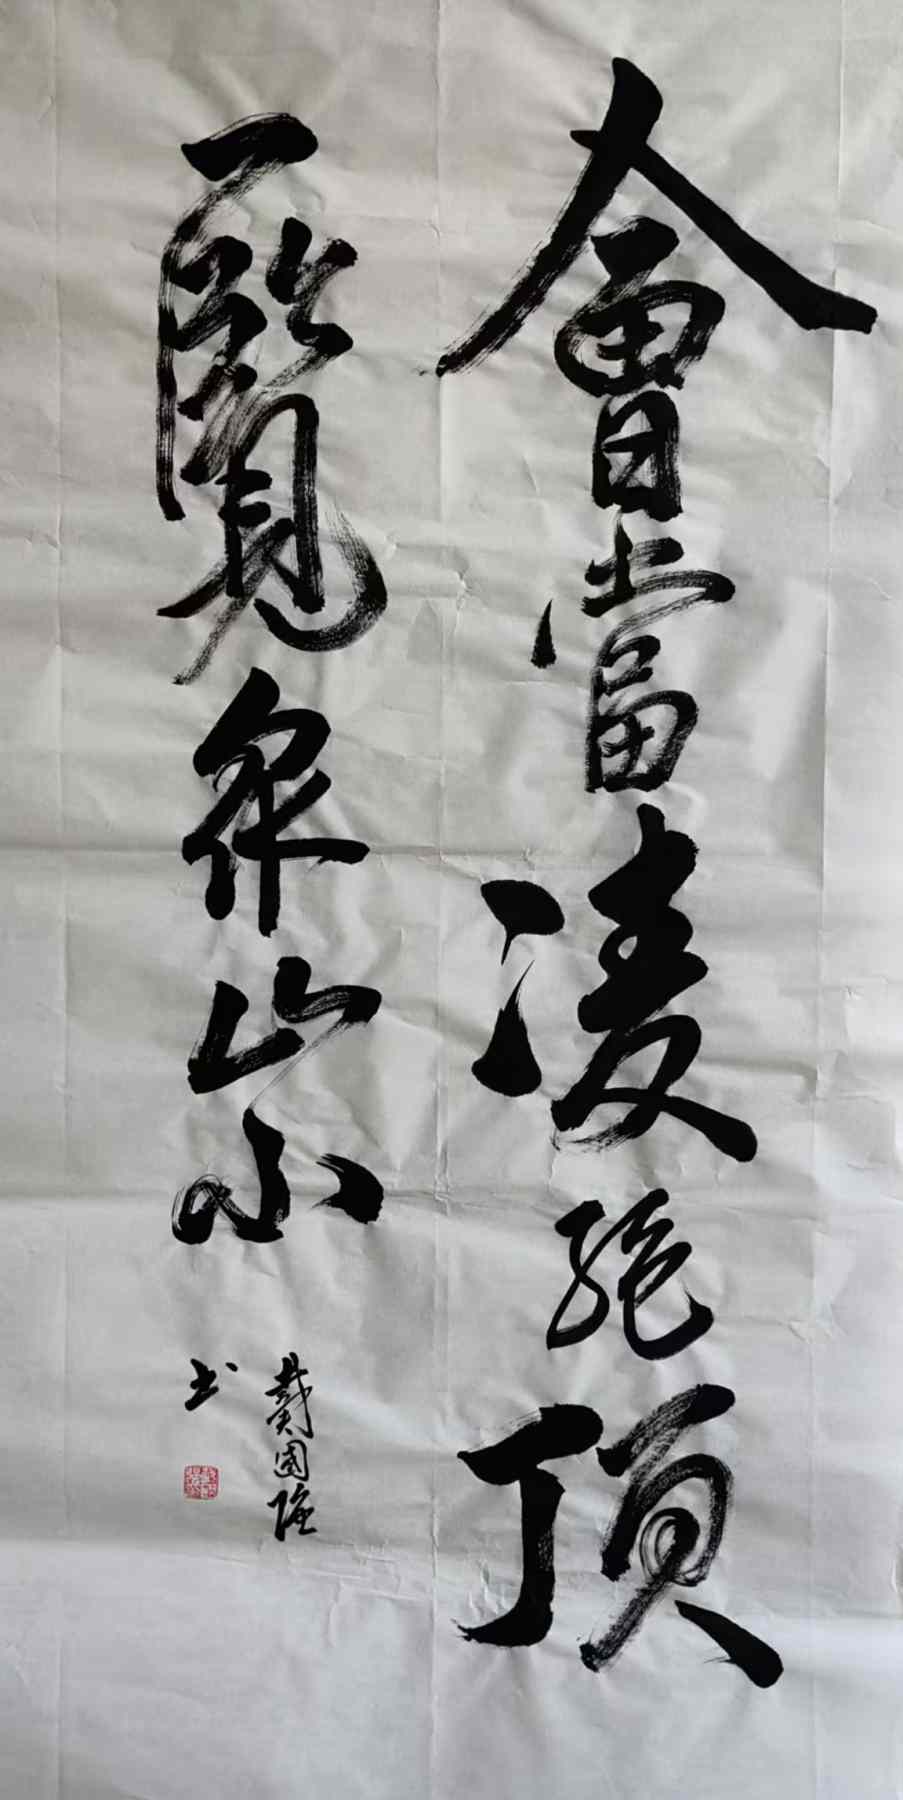 會當凌絶頂
一覽衆山小
戴國強
书